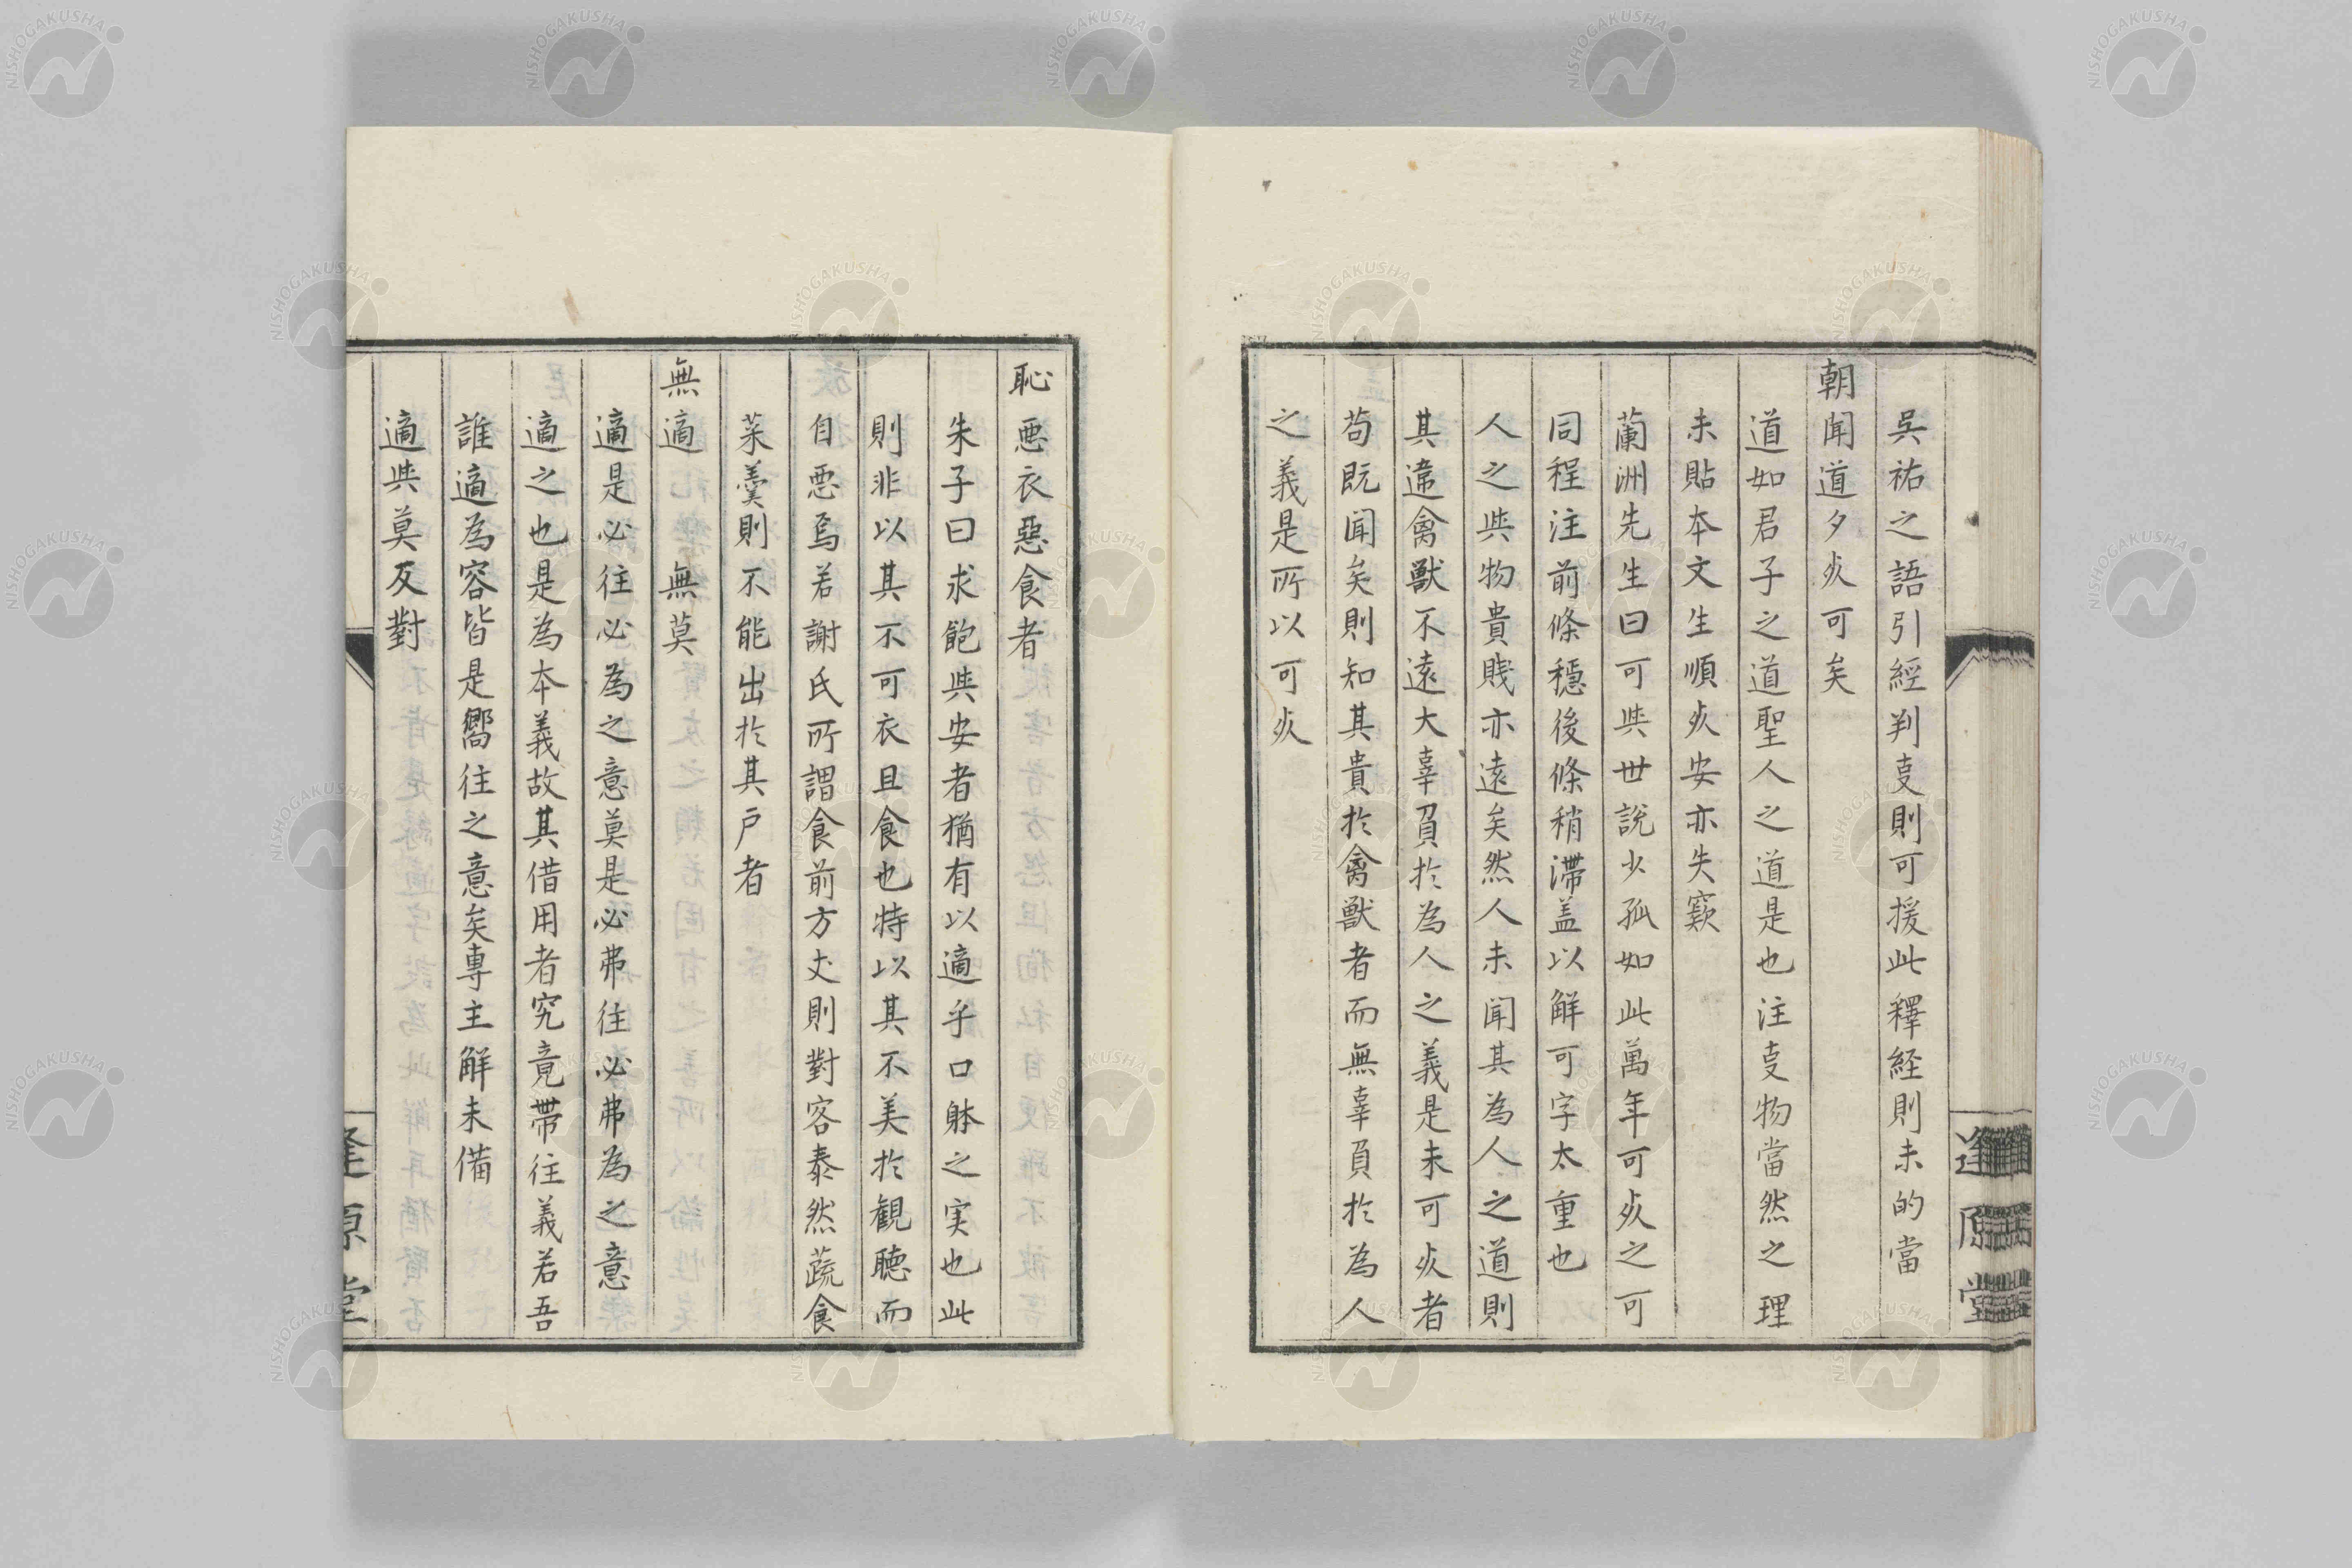 吳祐之語引經判叓則可援此釋経則未的當
朝聞道夕㱙可矣
道如君子之道聖人之道是也注叓物當然之理
未貼本文生順㱙安亦失窾
蘭洲先生曰可与世說少孤如此萬年可㱙之可
同程注前條穩後條稍滯盖以觧可字太重也
人之与物貴賎亦遠矣然人未聞其為人之道則
其違禽獣不遠大辜負於為人之義是未可㱙者
苟既聞矣則知其貴於禽獣者而無辜負於為人
之義是所以可㱙
恥惡衣惡食者
朱子曰求飽与安者猶有以適乎口躰之実也此
則非以其不可衣且食也特以其不美於観聴而
自悪焉若謝氏所謂食前方丈則對客泰然蔬食
菜羹則不能出於其戸者
無適 無莫
適是必往必為之意莫是必弗往必弗為之意
適之也是為本義故其借用者究竟帯往義若吾
誰適為容皆是嚮往之意矣專主觧未備
適与莫反對
逢原堂
逢原堂
NISHOGAKUSHA